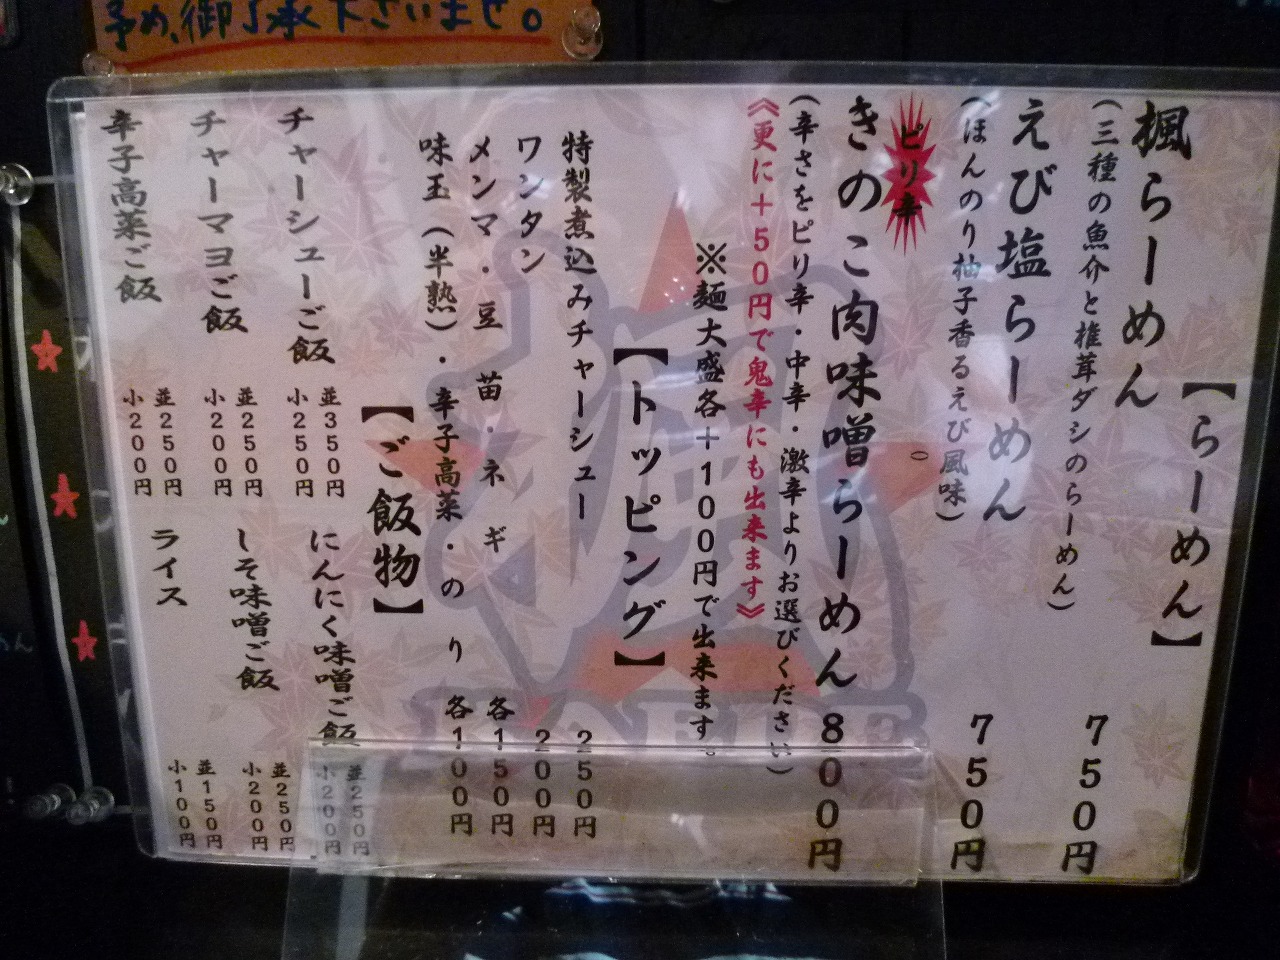 予め、御了承下さいませ。
【らーめん】
楓らーめん 750円
(三種の魚介と椎茸ダシのらーめん)
えび塩らーめん 750円
(ほんのり柚子香るえび風味)
ピリ辛
きのこ肉味噌らーめん 800円
(辛さをピリ辛・中辛・激辛よりお選びください)
《更に+50円で鬼辛にも出来ます》
※麺大盛各+100円で出来ます。
【トッピング】
特製煮込みチャーシュー 250円
ワンタン 200円
メンマ・豆苗・ネギ 各150円
味玉(半熟)・辛子高菜・のり 各100円
【ご飯物】
チャーシューご飯 並350円 小250円
にんにく味噌ご飯 並250円 小200円
チャーマヨご飯 並250円 小200円
しそ味噌ご飯 並250円 小200円
辛子高菜ご飯 並250円 小200円
ライス 並150円 小100円